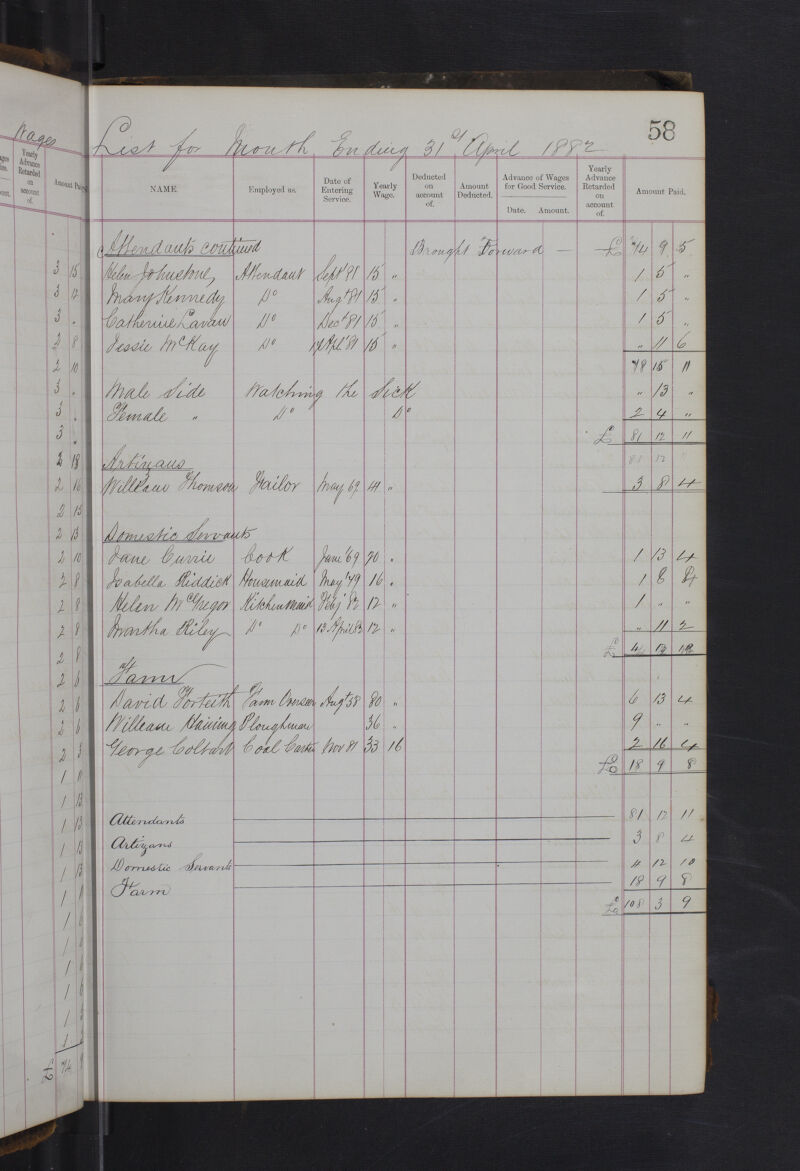 58
List for Month Ending 31st April 1882
NAME. Employed as. Date of Entering Service. Yearly Wage. Deducted on account of. Amount Deducted. Advance of Wages for Good Service. Date. Amount. Yearly Advance Retarded on account of. Amount Paid.
Attendants continued Brought Forward — £ 74 9 5
Helen Johnstone, Attendant Sept 81 15 „ 1 5 „
Mary Kennedy Do Augt 81 15 „ 1 5 „
Catherine Lavan Do Decr 81 15 „ 1 5 „
Jessie McKay Do 17 Apl '81 15 „ „ 11 6
78 15 11
Male Side Watching the Sick „ 13 „
Female „ Do Do 2 4 „
£ 81 12 11
81 12 11
Artizans
William Thomson Tailor May 69 41 „ 3 8 4
Domestic Servants
Jane Currie Cook June '69 20 „ 1 13 4
Isabella Riddick Housemaid May '79 16 „ 1 8 4
Helen McGregor Kitchenmaid Feby 82 12 „ 1 „ „
Martha Riley Do Do 13 April 82 12 „ „ 11 2
£ 4 12 10
Farm
David Forteith Farm Overseer Augt 58 80 „ 6 13 4
William Haining Ploughman 36 „ 9 „ „
George Colvart Coal Carter Nov 81 33 16 2 16 4
£ 18 9 8
Attendants 81 12 11
Artizans 3 8 4
Domestic Servants 4 12 10
Farm 18 9 8
£ 108 3 9